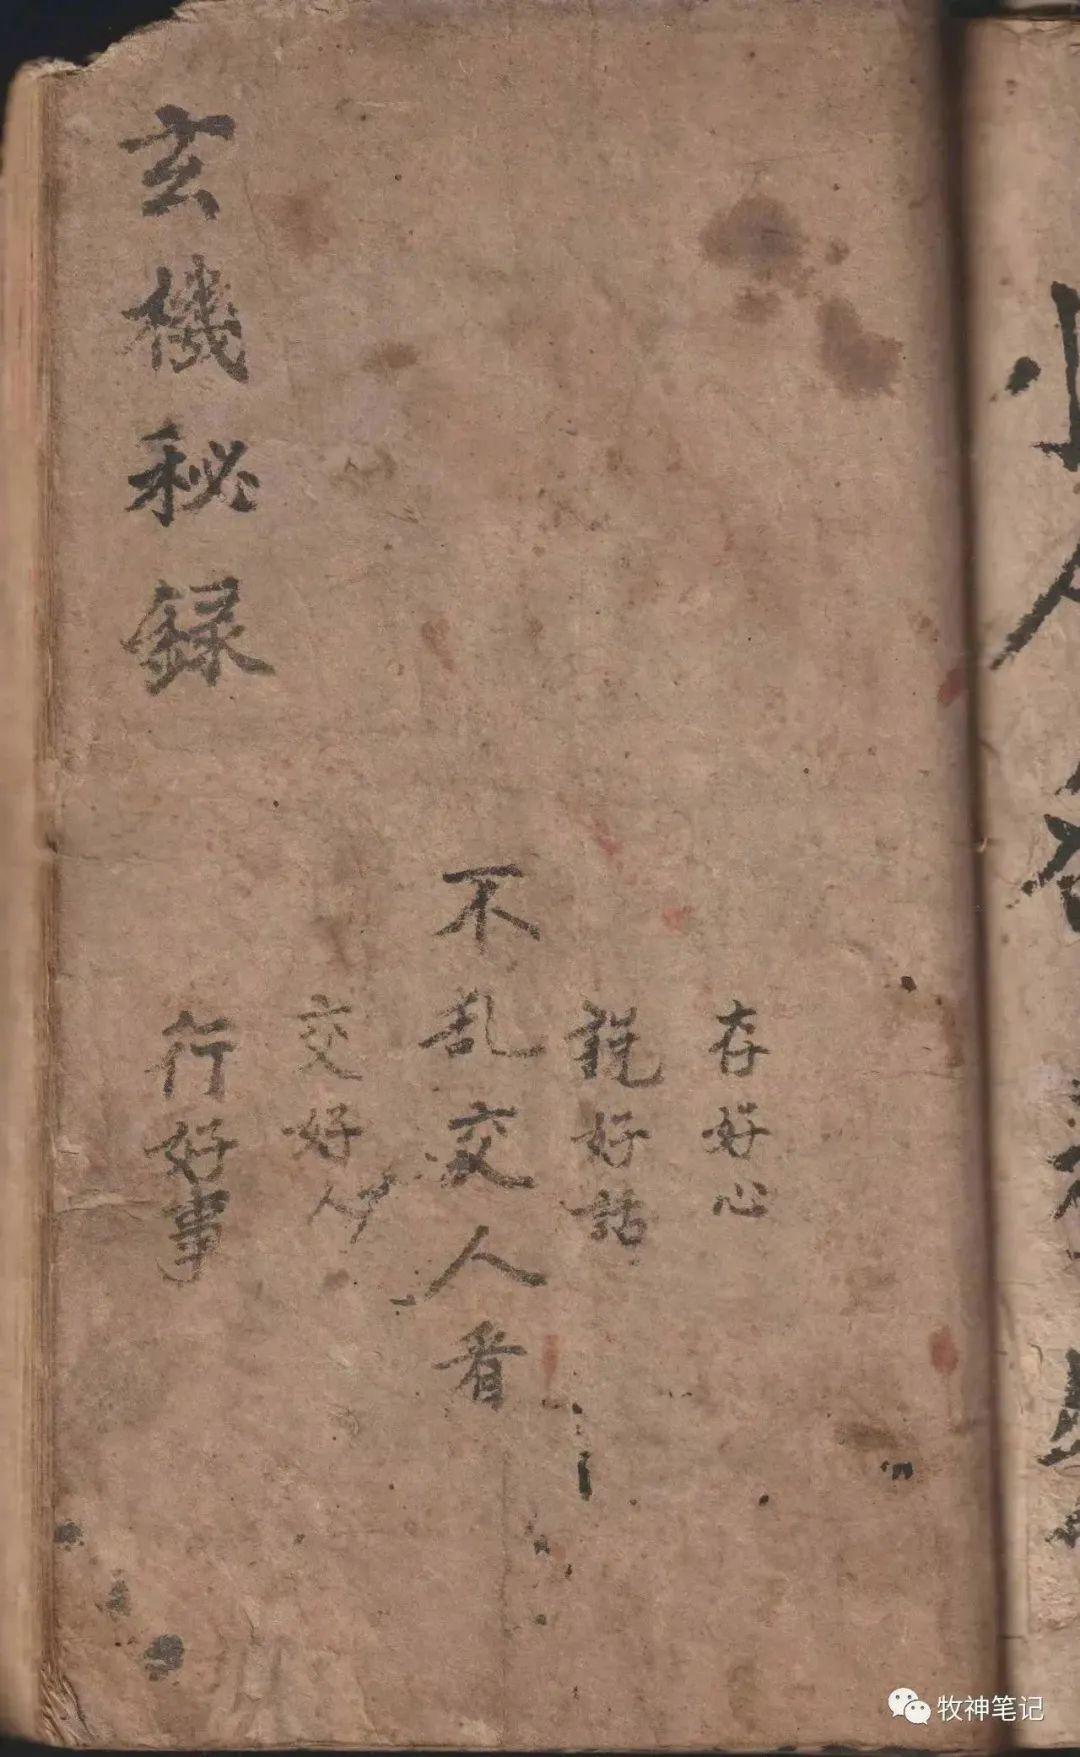 存好心
説好話
不乱交人看
交好人
行好事
玄機秘録
牧神笔记